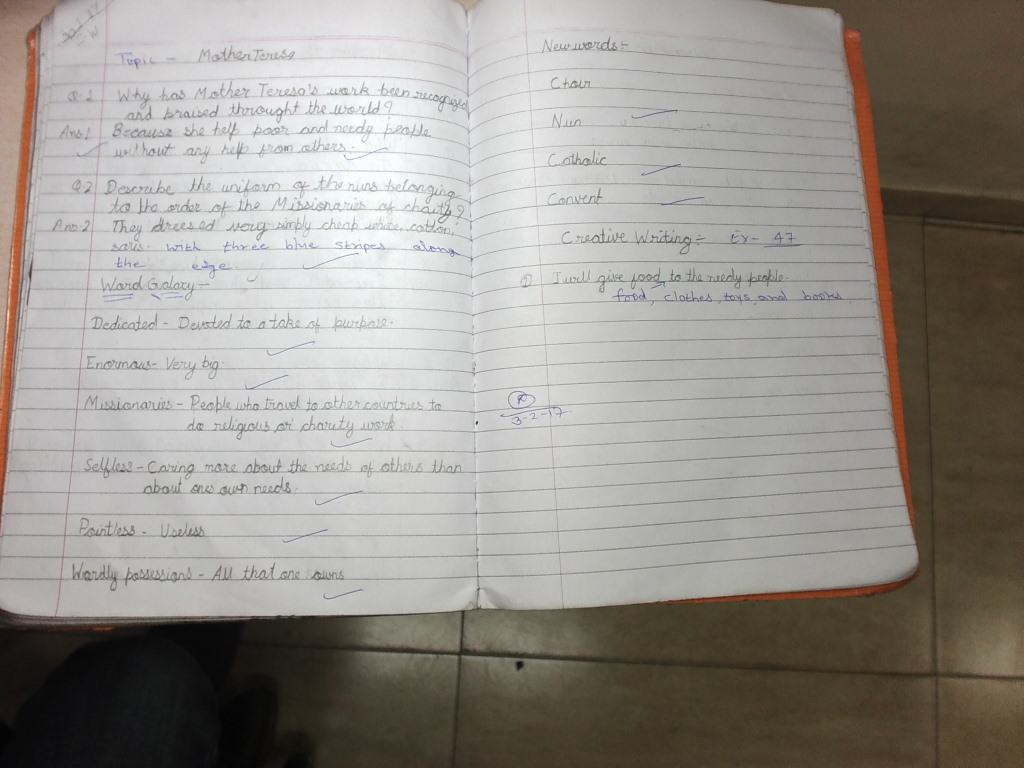 Topic - Mother Teresa
Q.1 Why has Mother Teresa's work been recognized
and praised throught the world?
Ans.1 Because she help poor and needy people
without any help from others.
Q.2 Describe the uniform of the nuns belonging
to the order of the Missionaries of charity?
Ans.2 They dreesed very simply cheap white, cotton,
saris. with three blue stripes along
the edge.
Word Galaxy -
Dedicated - Devoted to a take of purpose.
Enormous - Very big.
Missionaries - People who travel to other countries to
do religious or charity work.
Selfless - Caring more about the needs of others than
about ones own needs.
Pointless - Useless
Wordly possessions - All that one owns
New words :-
Choir
Nun
Catholic
Convent
Creative Writing :- Ex - 47
① I will give food to the needy people.
food, clothes, toys and books.
3-2-17